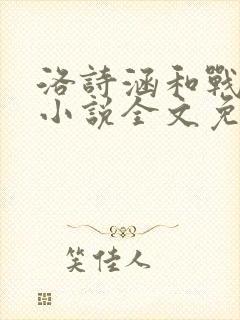 洛詩涵和戰
小說全文免
笑佳人